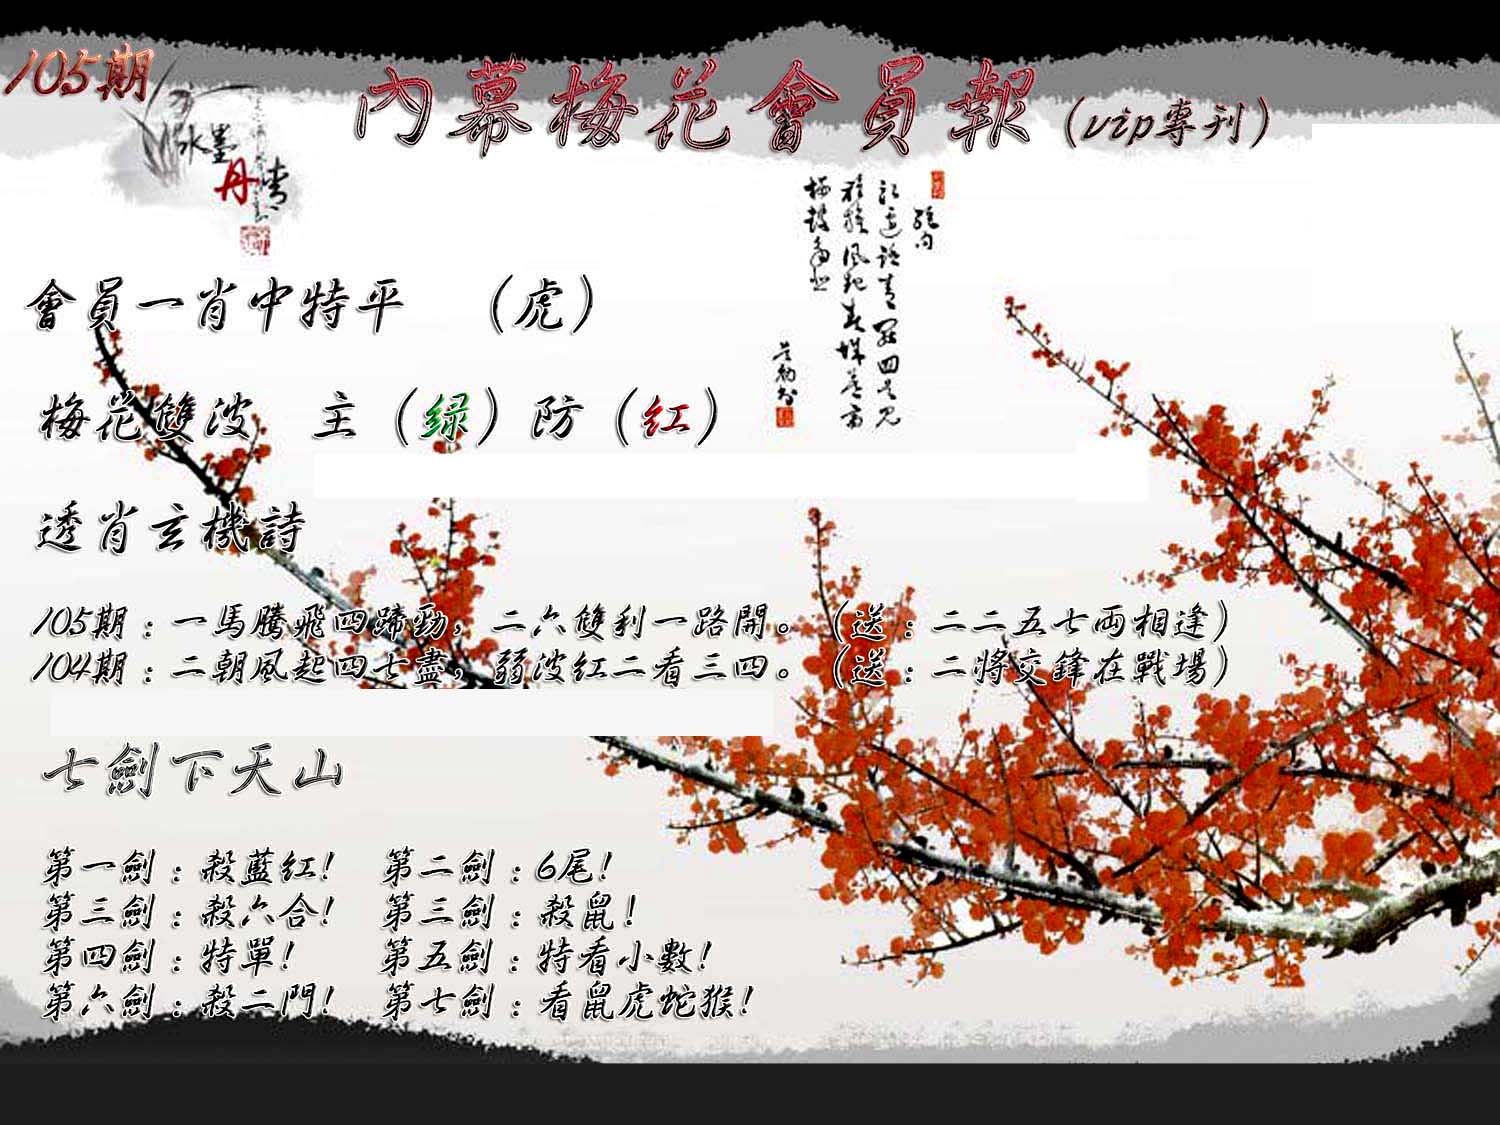 105期
內幕梅花會員報（vip專刊）
水墨
丹青
絕句
會員一肖中特平　（虎）
梅花雙波　主（绿）防（红）
透肖玄機詩
105期：一馬騰飛四蹄勁，二六雙利一路開。（送：二二五七両相逢）
104期：二朝風起四七盡，弱波紅二看三四。（送：二將交鋒在戰場）
七劍下天山
第一劍：殺藍紅！　第二劍：6尾！
第三劍：殺六合！　第三劍：殺鼠！
第四劍：特單！　第五劍：特看小數！
第六劍：殺二門！　第七劍：看鼠虎蛇猴！